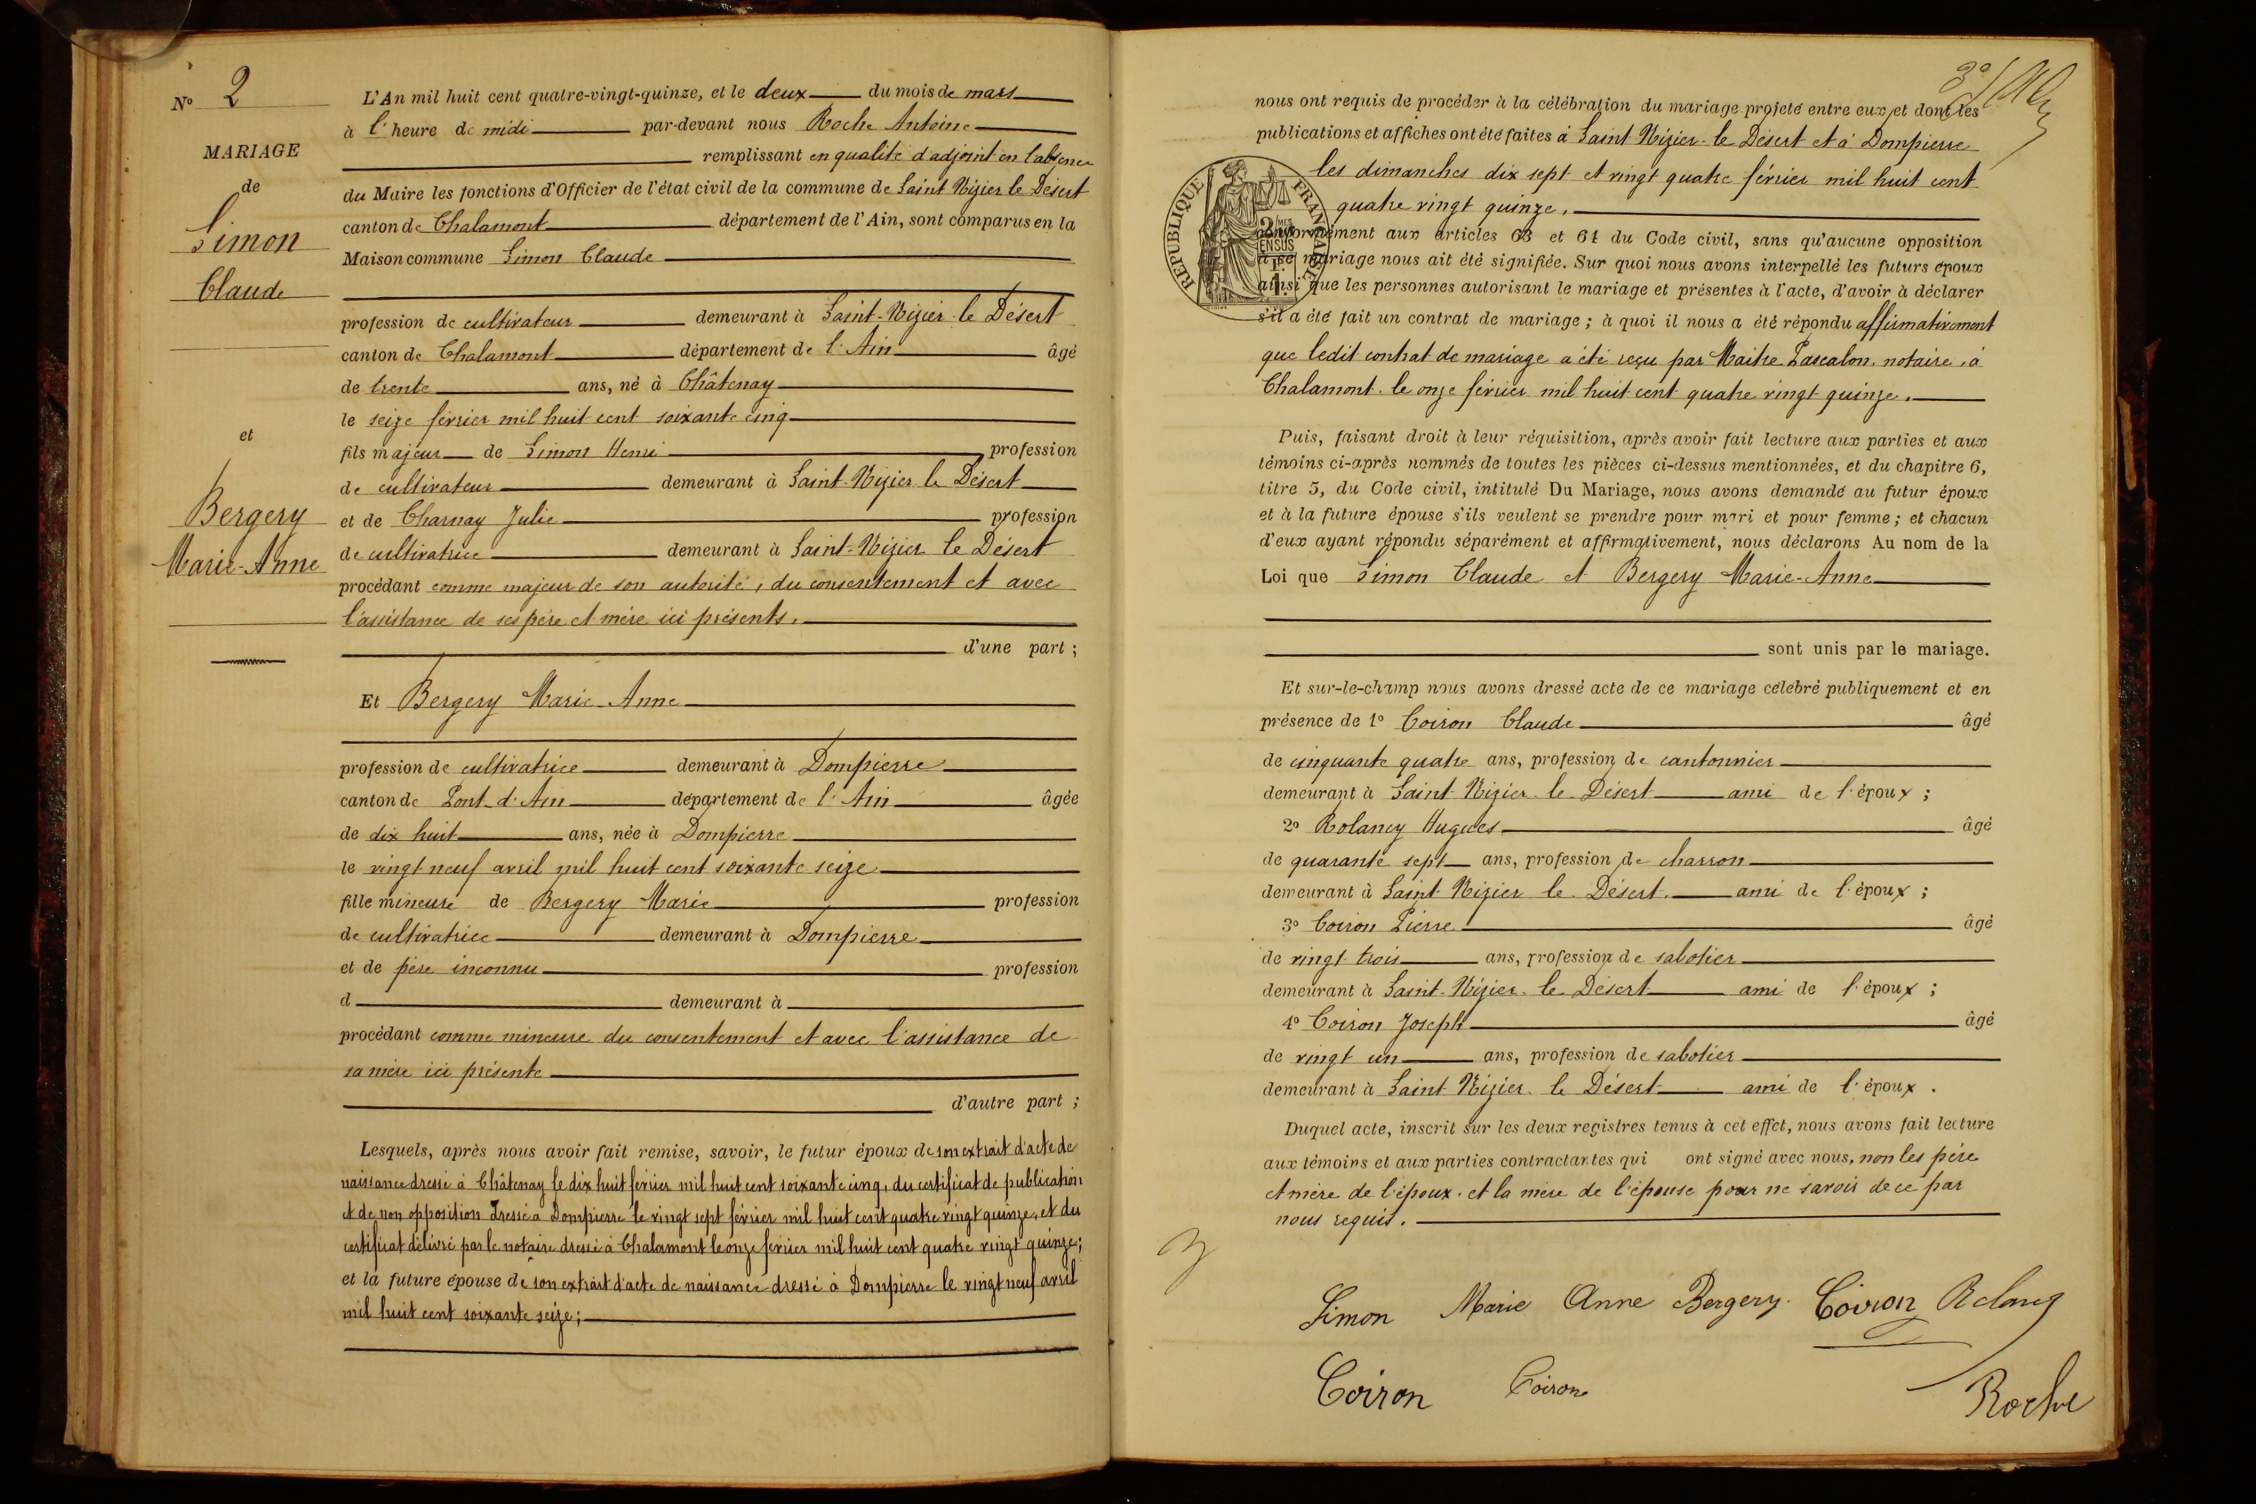 N° 2
MARIAGE
de
Simon
Claude
et
Bergery
Marie-Anne
L'An mil huit cent quatre-vingt-quinze, et le deux du mois de mars
à l'heure de midi par-devant nous Roche Antoine
remplissant en qualité d'adjoint en l'absence
du Maire les fonctions d'Officier de l'état civil de la commune de Saint Nizier le Désert
canton de Chalamont département de l'Ain, sont comparus en la
Maison commune Simon Claude
profession de cultivateur demeurant à Saint-Nizier le Désert
canton de Chalamont département de l'Ain âgé
de trente ans, né à Châtenay
le seize février mil huit cent soixante cinq
fils majeur de Simon Henri profession
de cultivateur demeurant à Saint-Nizier le Désert
et de Charnay Julie profession
de cultivatrice demeurant à Saint-Nizier le Désert
procédant comme majeur de son autorité, du consentement et avec
l'assistance de ses père et mère ici présents.
d'une part ;
Et Bergery Marie-Anne
profession de cultivatrice demeurant à Dompierre
canton de Pont-d'Ain département de l'Ain âgée
de dix huit ans, née à Dompierre
le vingt neuf avril mil huit cent soixante seize
fille mineure de Bergery Marie profession
de cultivatrice demeurant à Dompierre
et de père inconnu profession
d demeurant à
procédant comme mineure du consentement et avec l'assistance de
sa mère ici présente
d'autre part ;
Lesquels, après nous avoir fait remise, savoir, le futur époux de son extrait d'acte de
naissance dressé à Châtenay le dix huit février mil huit cent soixante cinq, du certificat de publication
et de non opposition dressé à Dompierre le vingt sept février mil huit cent quatre vingt quinze, et du
certificat délivré par le notaire dressé à Chalamont le onze février mil huit cent quatre vingt quinze;
et la future épouse de son extrait d'acte de naissance dressé à Dompierre le vingt neuf avril
mil huit cent soixante seize;
nous ont requis de procéder à la célébration du mariage projeté entre eux et dont les
publications et affiches ont été faites à Saint Nizier-le Désert et à Dompierre
les dimanches dix sept et vingt quatre février mil huit cent
quatre vingt quinze,
RÉPUBLIQUE FRANÇAISE
conformément aux articles 63 et 64 du Code civil, sans qu'aucune opposition
à se mariage nous ait été signifiée. Sur quoi nous avons interpellé les futurs époux
ainsi que les personnes autorisant le mariage et présentes à l'acte, d'avoir à déclarer
s'il a été fait un contrat de mariage ; à quoi il nous a été répondu affirmativement
que ledit contrat de mariage a été reçu par Maître Pascalon, notaire, à
Chalamont le onze février mil huit cent quatre vingt quinze.
Puis, faisant droit à leur réquisition, après avoir fait lecture aux parties et aux
témoins ci-après nommés de toutes les pièces ci-dessus mentionnées, et du chapitre 6,
titre 5, du Code civil, intitulé Du Mariage, nous avons demandé au futur époux
et à la future épouse s'ils veulent se prendre pour mari et pour femme ; et chacun
d'eux ayant répondu séparément et affirmativement, nous déclarons Au nom de la
Loi que Simon Claude et Bergery Marie-Anne
sont unis par le mariage.
Et sur-le-champ nous avons dressé acte de ce mariage célébré publiquement et en
présence de 1° Coiron Claude âgé
de cinquante quatre ans, profession de cantonnier
demeurant à Saint Nizier le Désert ami de l'époux ;
2° Rolancy Hugues âgé
de quarante sept ans, profession de charron
demeurant à Saint Nizier le Désert. ami de l'époux ;
3° Coiron Pierre âgé
de vingt trois ans, profession de sabotier
demeurant à Saint-Nizier le Désert ami de l'époux ;
4° Coiron Joseph âgé
de vingt un ans, profession de sabotier
demeurant à Saint Nizier le Désert ami de l'époux.
Duquel acte, inscrit sur les deux registres tenus à cet effet, nous avons fait lecture
aux témoins et aux parties contractantes qui ont signé avec nous, non les père
et mère de l'époux. et la mère de l'épouse pour ne savoir de ce par
nous requis.
Simon Marie Anne Bergery. Coiron
Coiron Coiron Roche